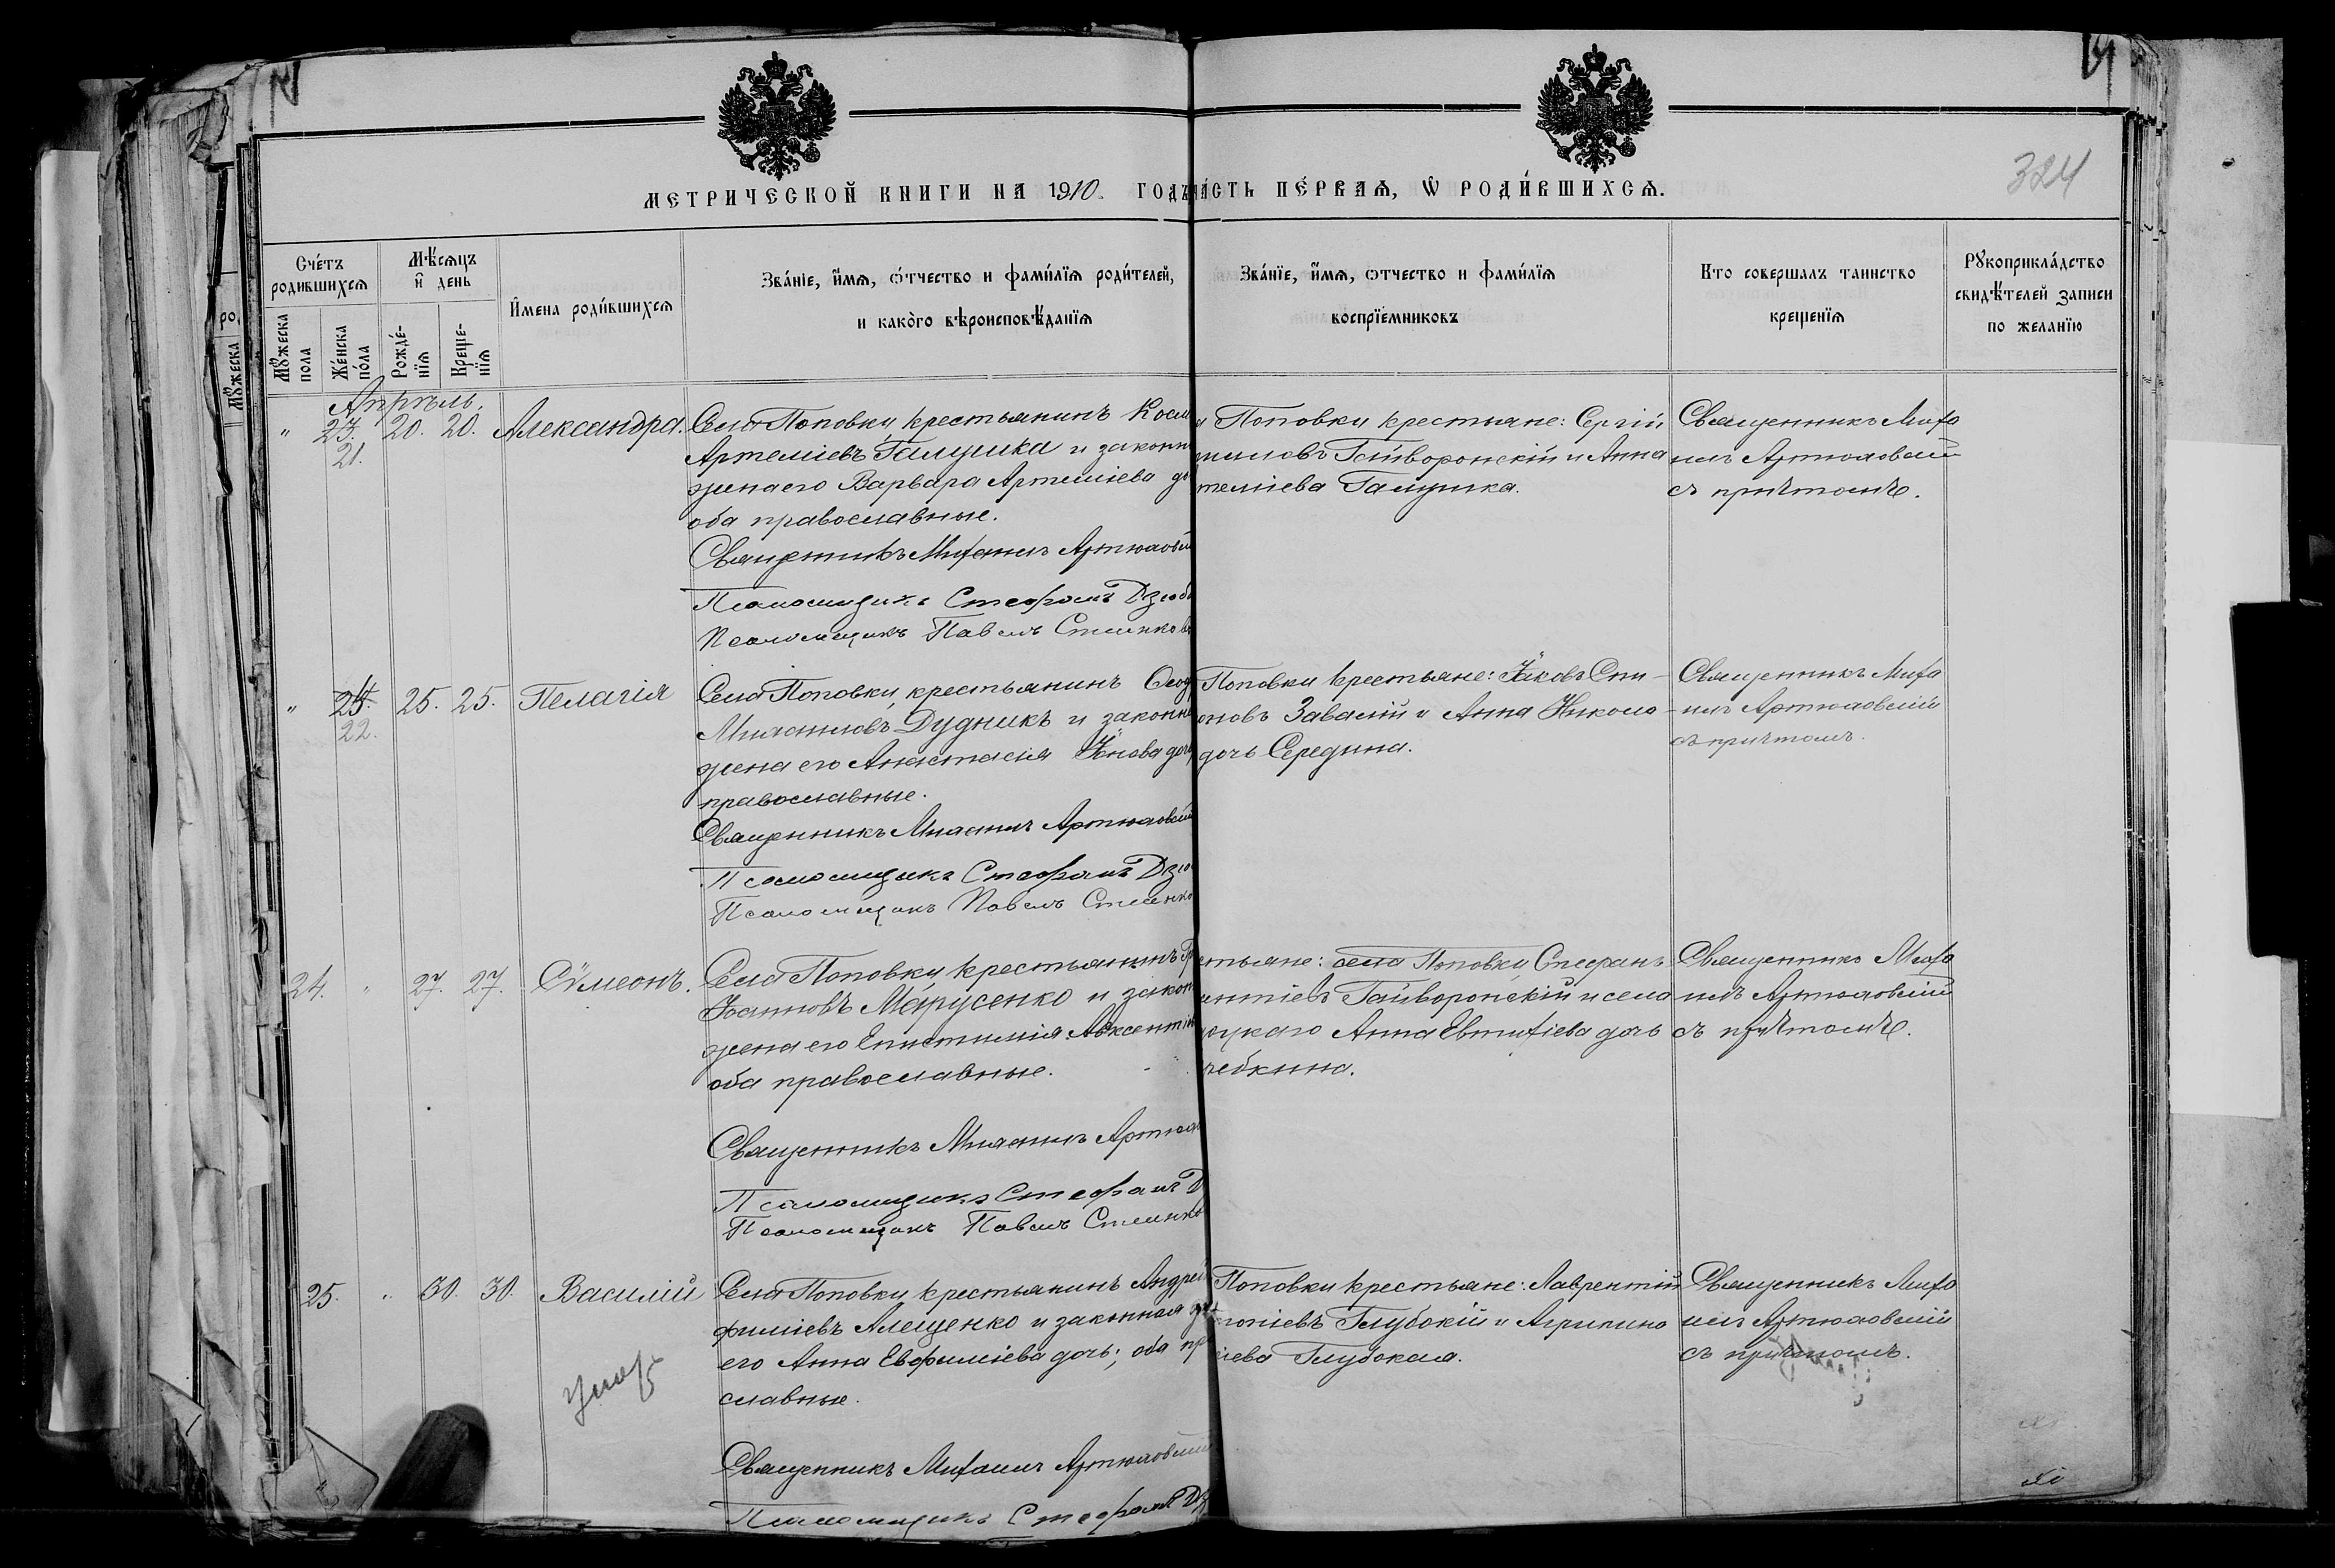 324
МЕТРИЧЕСКОЙ КНИГИ НА 1910 ГОДЪ ЧАСТЬ ПЕРВАѦ, Ѿ РОДИВШИХСѦ.
Счетъ родившихсѧ
Мꙋжеска пола
Женска пола
Мѣсѧцъ и день
Рожденїѧ
Крещенїѧ
Имена родившихсѧ
Званїе, имѧ, ѻтчество и фамилїѧ родителей,
и какого вѣроисповѣданїѧ
Званїе, имѧ, ѻтчество и фамилїѧ
воспрїемниковъ
Кто совершалъ таинство
крещенїѧ
Рꙋкоприкладство
свидѣтелей записи
по желанїю
Апрѣль.
" 23. 20. 20. Александра.
21.
Села Поповки, крестьянинъ Косм
Артеміевъ Галушка и законн
жена его Варвара Артеміева до
оба православные.
Священникъ Михаилъ Артюховскій
Псаломщикъ Стефанъ Дзюб
Псаломщикъ Павелъ
Поповки крестьяне: Сергій
Гайворонскій и Анна
теміева Галушка.
Священникъ Миха
илъ Артюховскій
съ причтомъ.
" 25. 25. Пелагія
22.
Села Поповки, крестьянинъ Ѳеод
Михаиловъ Дудникъ и законн
жена его Анастасія дочь
православные.
Священникъ Михаилъ Артюховскій
Псаломщикъ Стефанъ Дзю
Псаломщикъ Павелъ
Поповки крестьяне: Яковъ Спи-
оновъ Завалій и Анна Никола-
дочь Середина.
Священникъ Миха
илъ Артюховскій
съ причтомъ.
24. " 27. 27. Сѵмеонъ.
Села Поповки, крестьянинъ Гр
Іоанновъ Марусенко и закон
жена его Епистимія Авксентіе
оба православные.
Священникъ Михаилъ Артюх
Псаломщикъ Стефанъ Д
Псаломщикъ Павелъ
стьяне: села Поповки, Стефанъ
ентіевъ Гайворонскій и села
Анна Евтихіева дочь
Священникъ Миха
илъ Артюховскій
съ причтомъ.
25. " 30. 30. Василій
Села Поповки крестьянинъ Андрей
фиміевъ Алещенко и законная же
его Анна Евфиміева дочь; оба пр
славные.
Священникъ Михаилъ Артюховскій
Псаломщикъ Стефанъ Дз
Поповки крестьяне: Лаврентій
Глубокій и Агрипина
іева Глубокая.
Священникъ Миха
илъ Артюховскій
съ причтомъ.